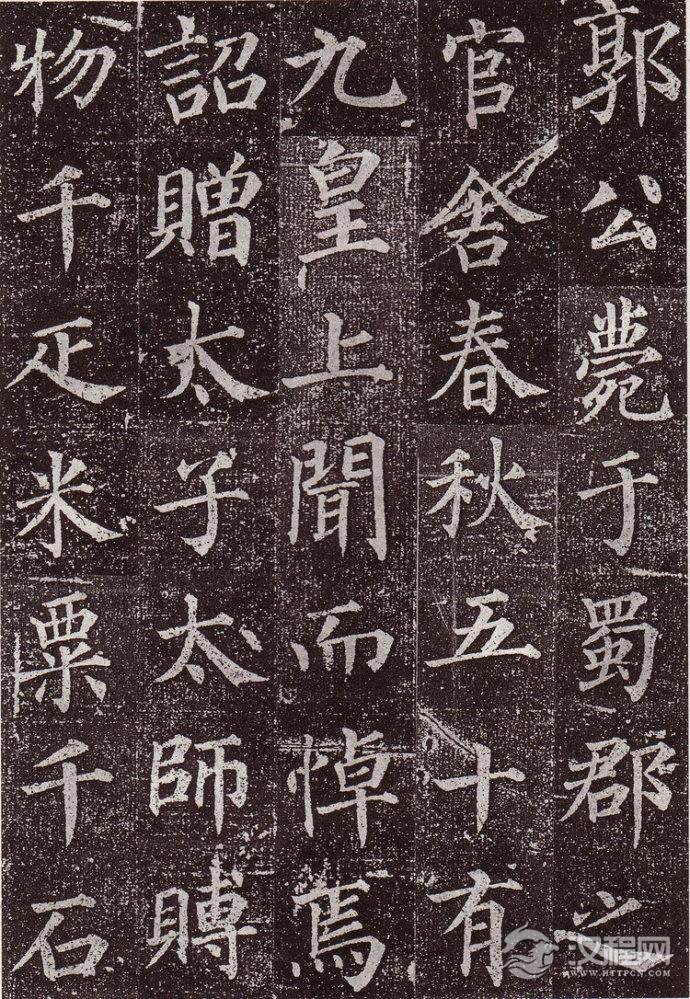 郭公薨于蜀郡之
官舍春秋五十有
九皇上聞而悼焉
詔贈太子太師賻
物千疋米粟千石
汉程网
WWW.HTTPCN.COM